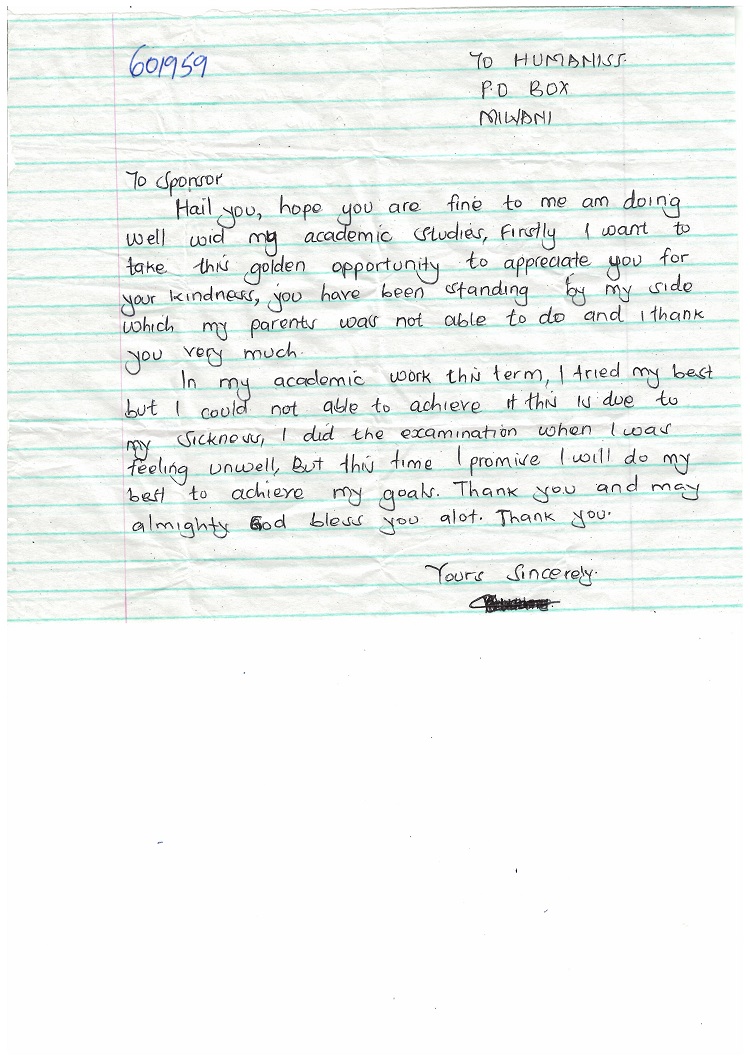 601959
TO HUMANISS.
P.O BOX
MIWANI
To Sponsor
Hail you, hope you are fine to me am doing
well wid my academic studies, Firstly I want to
take this golden opportunity to appreciate you for
your kindness, you have been standing by my side
which my parents was not able to do and i thank
you very much.
In my academic work this term, I tried my best
but I could not able to achieve it this is due to
my sickness, I did the examination when I was
feeling unwell, But this time I promise I will do my
best to achieve my goals. Thank you and may
almighty God bless you alot. Thank you.
Yours Sincerely.